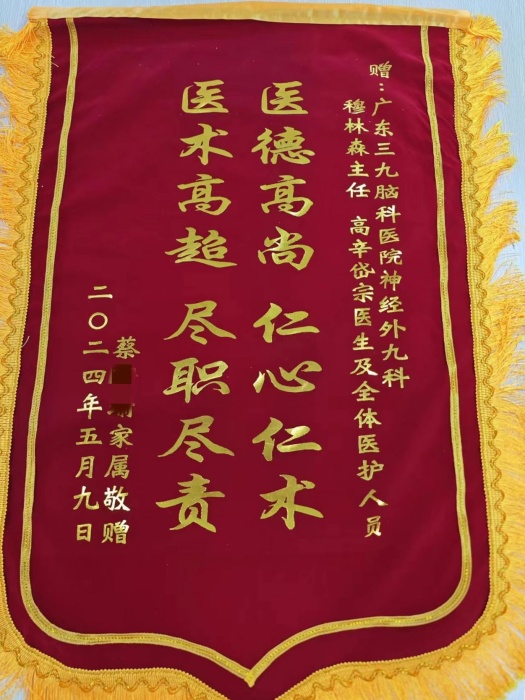 赠：广东三九脑科医院神经外九科
穆林森主任 高辛岱宗医生及全体医护人员
医德高尚 仁心仁术
医术高超 尽职尽责
蔡 家属敬赠
二〇二四年五月九日